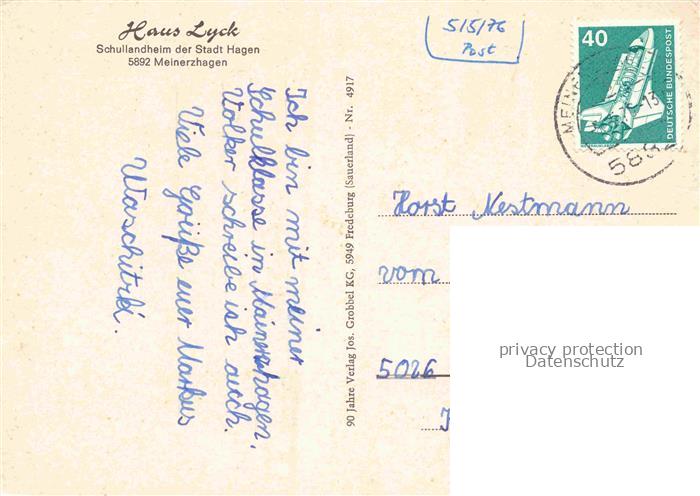 Haus Lyck
Schullandheim der Stadt Hagen
5892 Meinerzhagen
5/5/76
Post
40
DEUTSCHE BUNDESPOST
MEINE
13
589
Ich bin mit meiner
Schulklasse in Mainerzhagen,
Volker schreibe ich auch.
Viele Grüße euer Markus
90 Jahre Verlag Jos. Grobbel KG, 5949 Fredeburg (Sauerland) - Nr. 4917
Horst Nestmann
vom
5026
privacy protection
Datenschutz